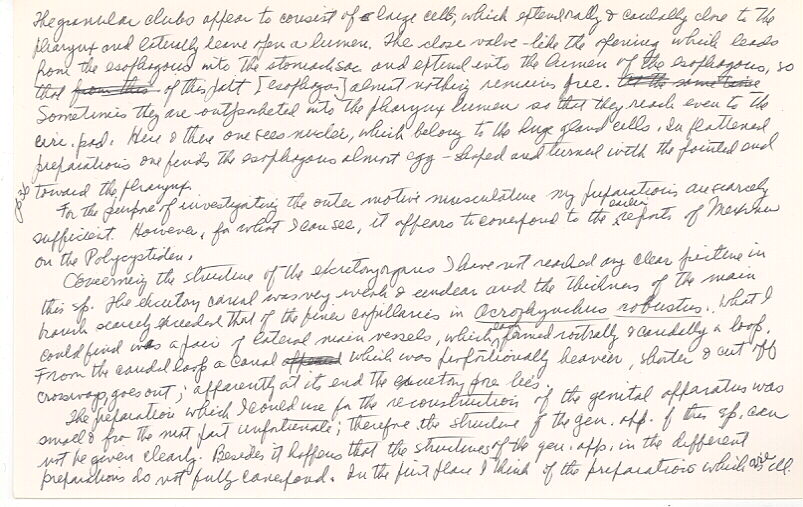 The granular clubs appear to consist of large cells, which extend orally & caudally close to the
pharynx and laterally leave open a lumen. The close valve-like the opening which leads
from the esophagous into the stomach sac and extend into the lumen of the esophagous, so
that from this of this part [esophagus] almost nothing remains free.
Sometimes they are outpocketed into the pharynx lumen so that they reach even to the
circ. pad. Here & there one sees nuclei, which belong to the huge gland cells. In flattened
preparations one finds the esophagous almost egg-shaped and turned with the pointed end
toward the pharynx.
For the purpose of investigating the outer motive musculature my preparations are scarcely
sufficient. However, for what I can see, it appears to correspond to the earlier reports of
on the Polycystiden.
Concerning the structure of the excretory organs I have not reached any clear picture in
this sp. The excretory canal was very weak & unclear and the thickness of the main
branch scarcely exceeded that of the finer capillaries in Acrorhynchus robustus. What I
could find was a pair of lateral main vessels, which formed rostrally & caudally a loop.
From the caudal loop a canal which was proportionally heavier, shorter & cut off
crossways, goes out; apparently at its end the excretory pore lies.
The preparation which I could use for the reconstruction of the genital apparatus was
small & for the most part unfortunate; therefore the structure of the gen. app. of this sp. can
not be given clearly. Besides it happens that the structures of the gen. app. in the different
preparations do not fully correspond. In the first place I think of the preparations which are ill.